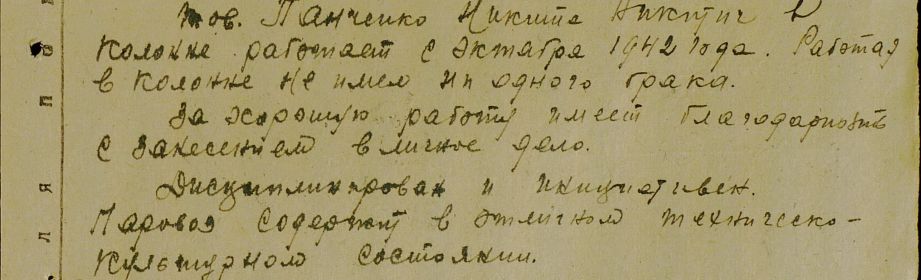 тов. Панченко Никита Никитич в
колонне работает с октября 1942 года. Работая
в колонне не имел ни одного брака.
За хорошую работу имеет благодарность
с занесением в личное дело.
Дисциплинирован и инициативен.
Паровоз содержит в отличном техническо-
культурном состоянии.